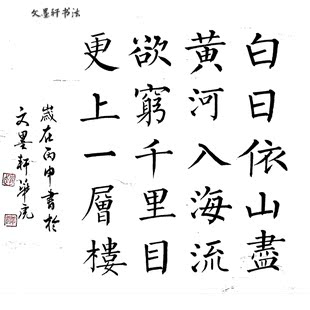 文墨轩书法
白日依山盡
黄河入海流
欲窮千里目
更上一層樓
歲在丙申書於
文墨軒華虎